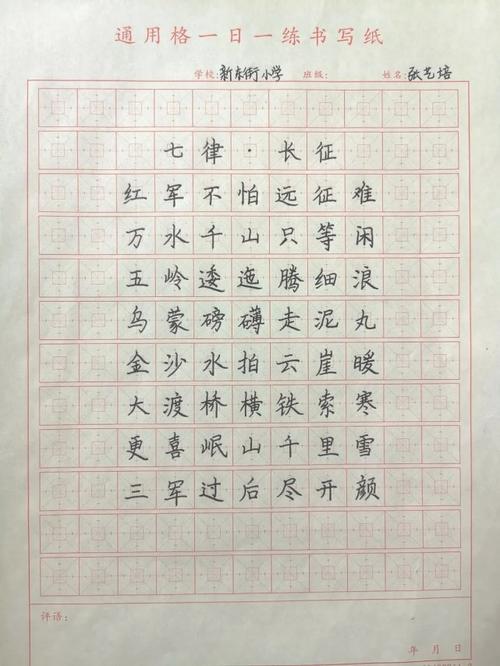 通用格一日一练书写纸
学校: 新东街小学 班级: 姓名: 张艺培
七律·长征
红军不怕远征难
万水千山只等闲
五岭逶迤腾细浪
乌蒙磅礴走泥丸
金沙水拍云崖暖
大渡桥横铁索寒
更喜岷山千里雪
三军过后尽开颜
评语:
年 月 日